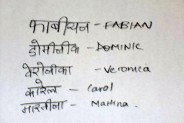 फाबीयन - FABIAN
डोमीनीक - DOMINIC
वेरोनीका - Veronica
कारोल - Carol
मारतीना - Martina.